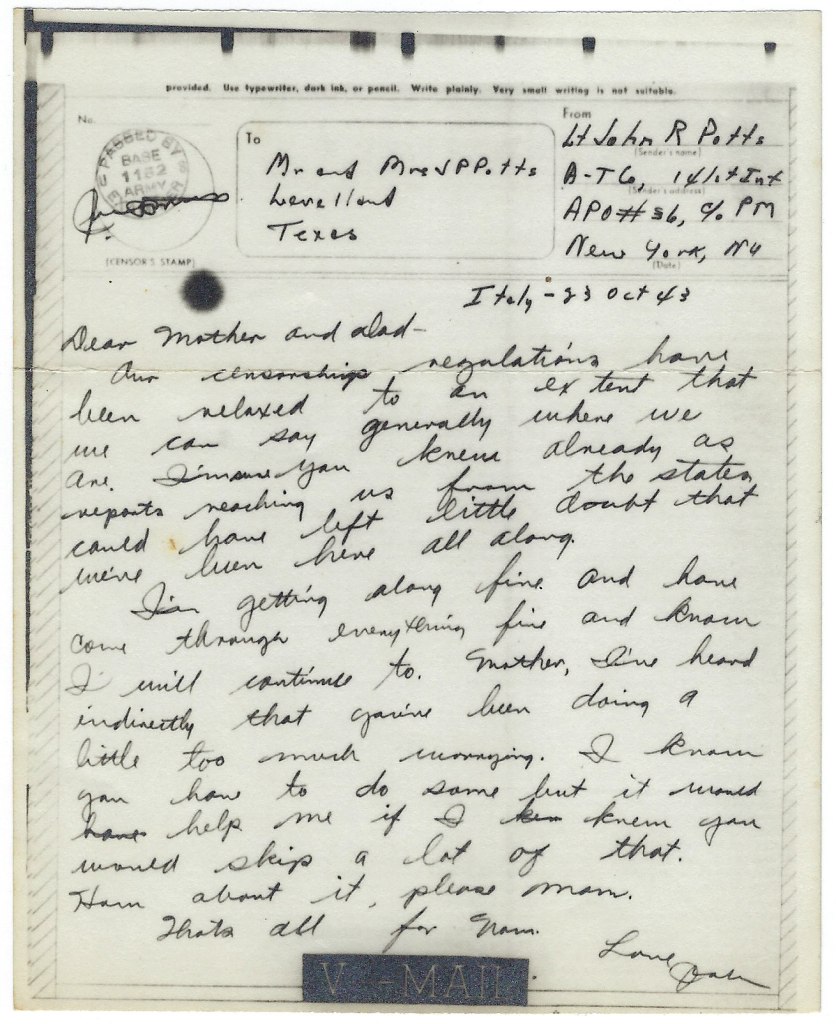 provided. Use typewriter, dark ink, or pencil. Write plainly. Very small writing is not suitable.
No.
PASSED BY
BASE
1152
ARMY
[CENSOR'S STAMP]
To
Mr and Mrs J P Potts
Levelland
Texas
From
Lt John R Potts
(Sender's name)
A-T6, 141st Inf
(Sender's address)
APO# 36, c/o PM
New York, NY
(Date)
Italy - 23 Oct 43
Dear Mother and dad-
Our censorship regulations have
been relaxed to an extent that
we can say generally where we
are. I'm sure you knew already as
reports reaching us from the states
could have left little doubt that
we've been here all along.
I'm getting along fine and have
come through everything fine and know
I will continue to. Mother, I've heard
indirectly that you've been doing a
little too much worrying. I know
you have to do some but it would
have help me if I kew knew you
would skip a lot of that.
How about it, please mom.
Thats all for now.
Love
John
V-MAIL